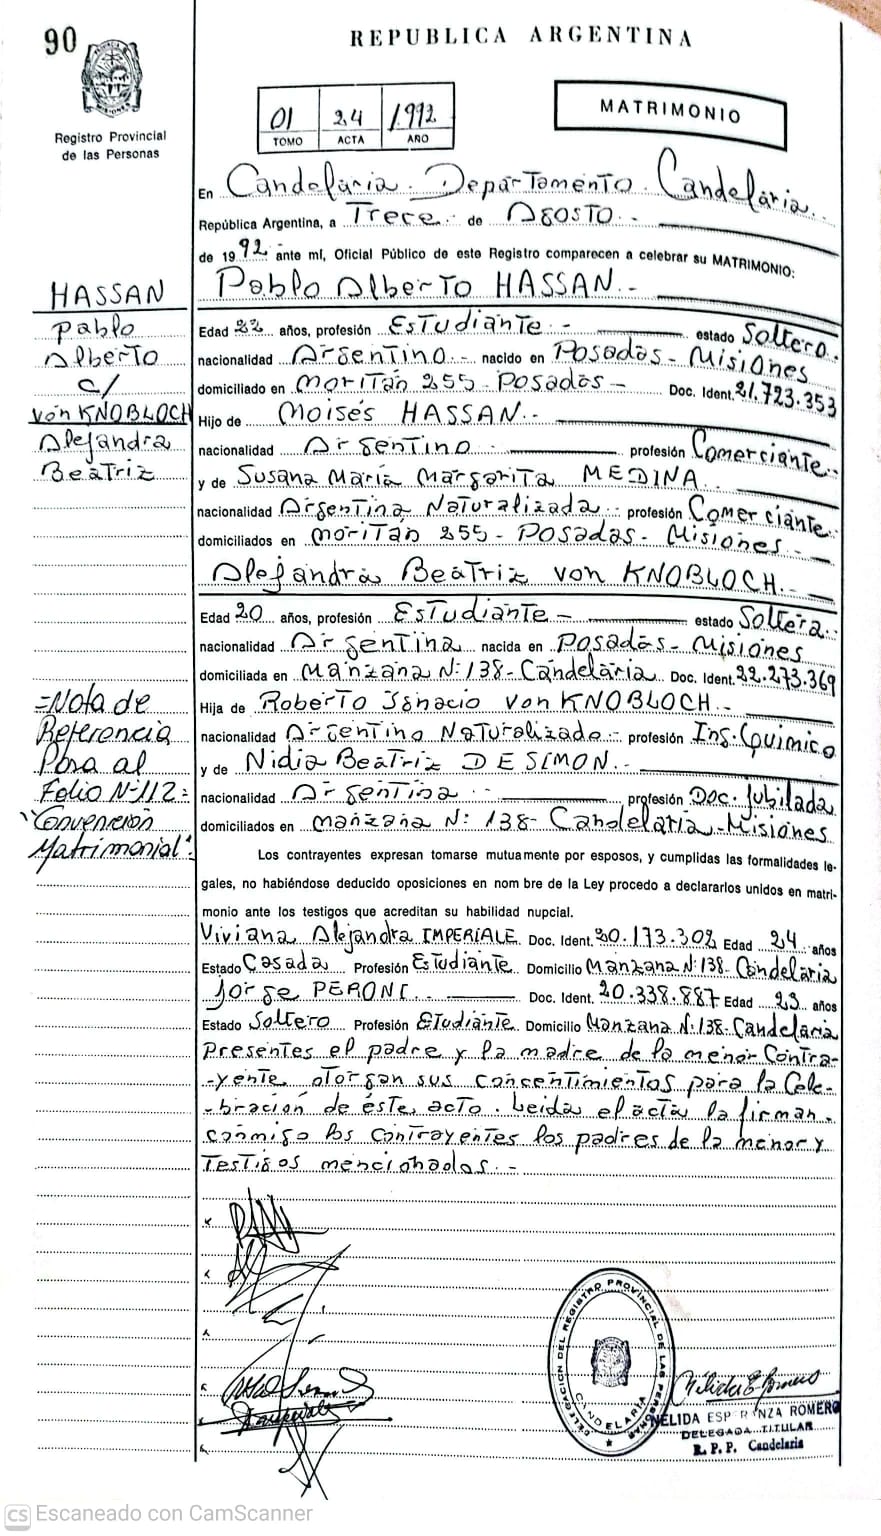 90
REPUBLICA ARGENTINA
Registro Provincial
de las Personas
01 24 1992
TOMO ACTA AÑO
MATRIMONIO
En Candelaria. Departamento. Candelaria.
República Argentina, a Trece.- de Agosto.-
de 1992 ante mí, Oficial Público de este Registro comparecen a celebrar su MATRIMONIO:
Pablo Alberto HASSAN.-
HASSAN
Pablo
Alberto
c/
von KNOBLOCH
Alejandra
Beatriz
Edad 22 años, profesión Estudiante.- estado Soltero.
nacionalidad Argentino.- nacido en Posadas- Misiones
domiciliado en Moritán 255- Posadas- Doc. Ident. 21.723.353
Hijo de Moisés HASSAN.-
nacionalidad Argentino profesión Comerciante.
y de Susana María Margarita MEDINA
nacionalidad Argentina Naturalizada profesión Comerciante
domiciliados en Moritán 255- Posadas- Misiones.-
Alejandra Beatriz von KNOBLOCH.-
Edad 20 años, profesión Estudiante- estado Soltera.
nacionalidad Argentina nacida en Posadas- Misiones
domiciliada en Manzana N:138- Candelaria Doc. Ident. 22.273.369
Hija de Roberto Ignacio von KNOBLOCH.-
nacionalidad Argentino Naturalizado- profesión Ing. Químico
y de Nidia Beatriz DE SIMON.
nacionalidad Argentina profesión Doc. Jubilada
domiciliados en Manzana N: 138- Candelaria-Misiones
=Nota de
Referencia
Pasa al
Folio N-112=
"Convención
Matrimonial"
Los contrayentes expresan tomarse mutuamente por esposos, y cumplidas las formalidades le-
gales, no habiéndose deducido oposiciones en nom bre de la Ley procedo a declararlos unidos en matri-
monio ante los testigos que acreditan su habilidad nupcial.
Viviana Alejandra IMPERIALE Doc. Ident. 20.173.302 Edad 24 años
Estado Casada Profesión Estudiante Domicilio Manzana N:138- Candelaria
Jorge PERONI Doc. Ident. 20.338.887 Edad 23 años
Estado Soltero Profesión Etudiante Domicilio Manzana N:138- Candelaria
Presentes el padre y la madre de la menor Contra-
-yente otorgan sus concentimientos para la Cele-
-bración de éste acto. Leída el acta la firman
conmigo los contrayentes los padres de la menor y
Testigos mencionados.-
DELEGACION DEL REGISTRO PROVINCIAL DE LAS PERSONAS
CANDELARIA
NELIDA ESP R NZA ROMERO
DELEGADA TITULAR
R. P. P. Candelaria
CS Escaneado con CamScanner